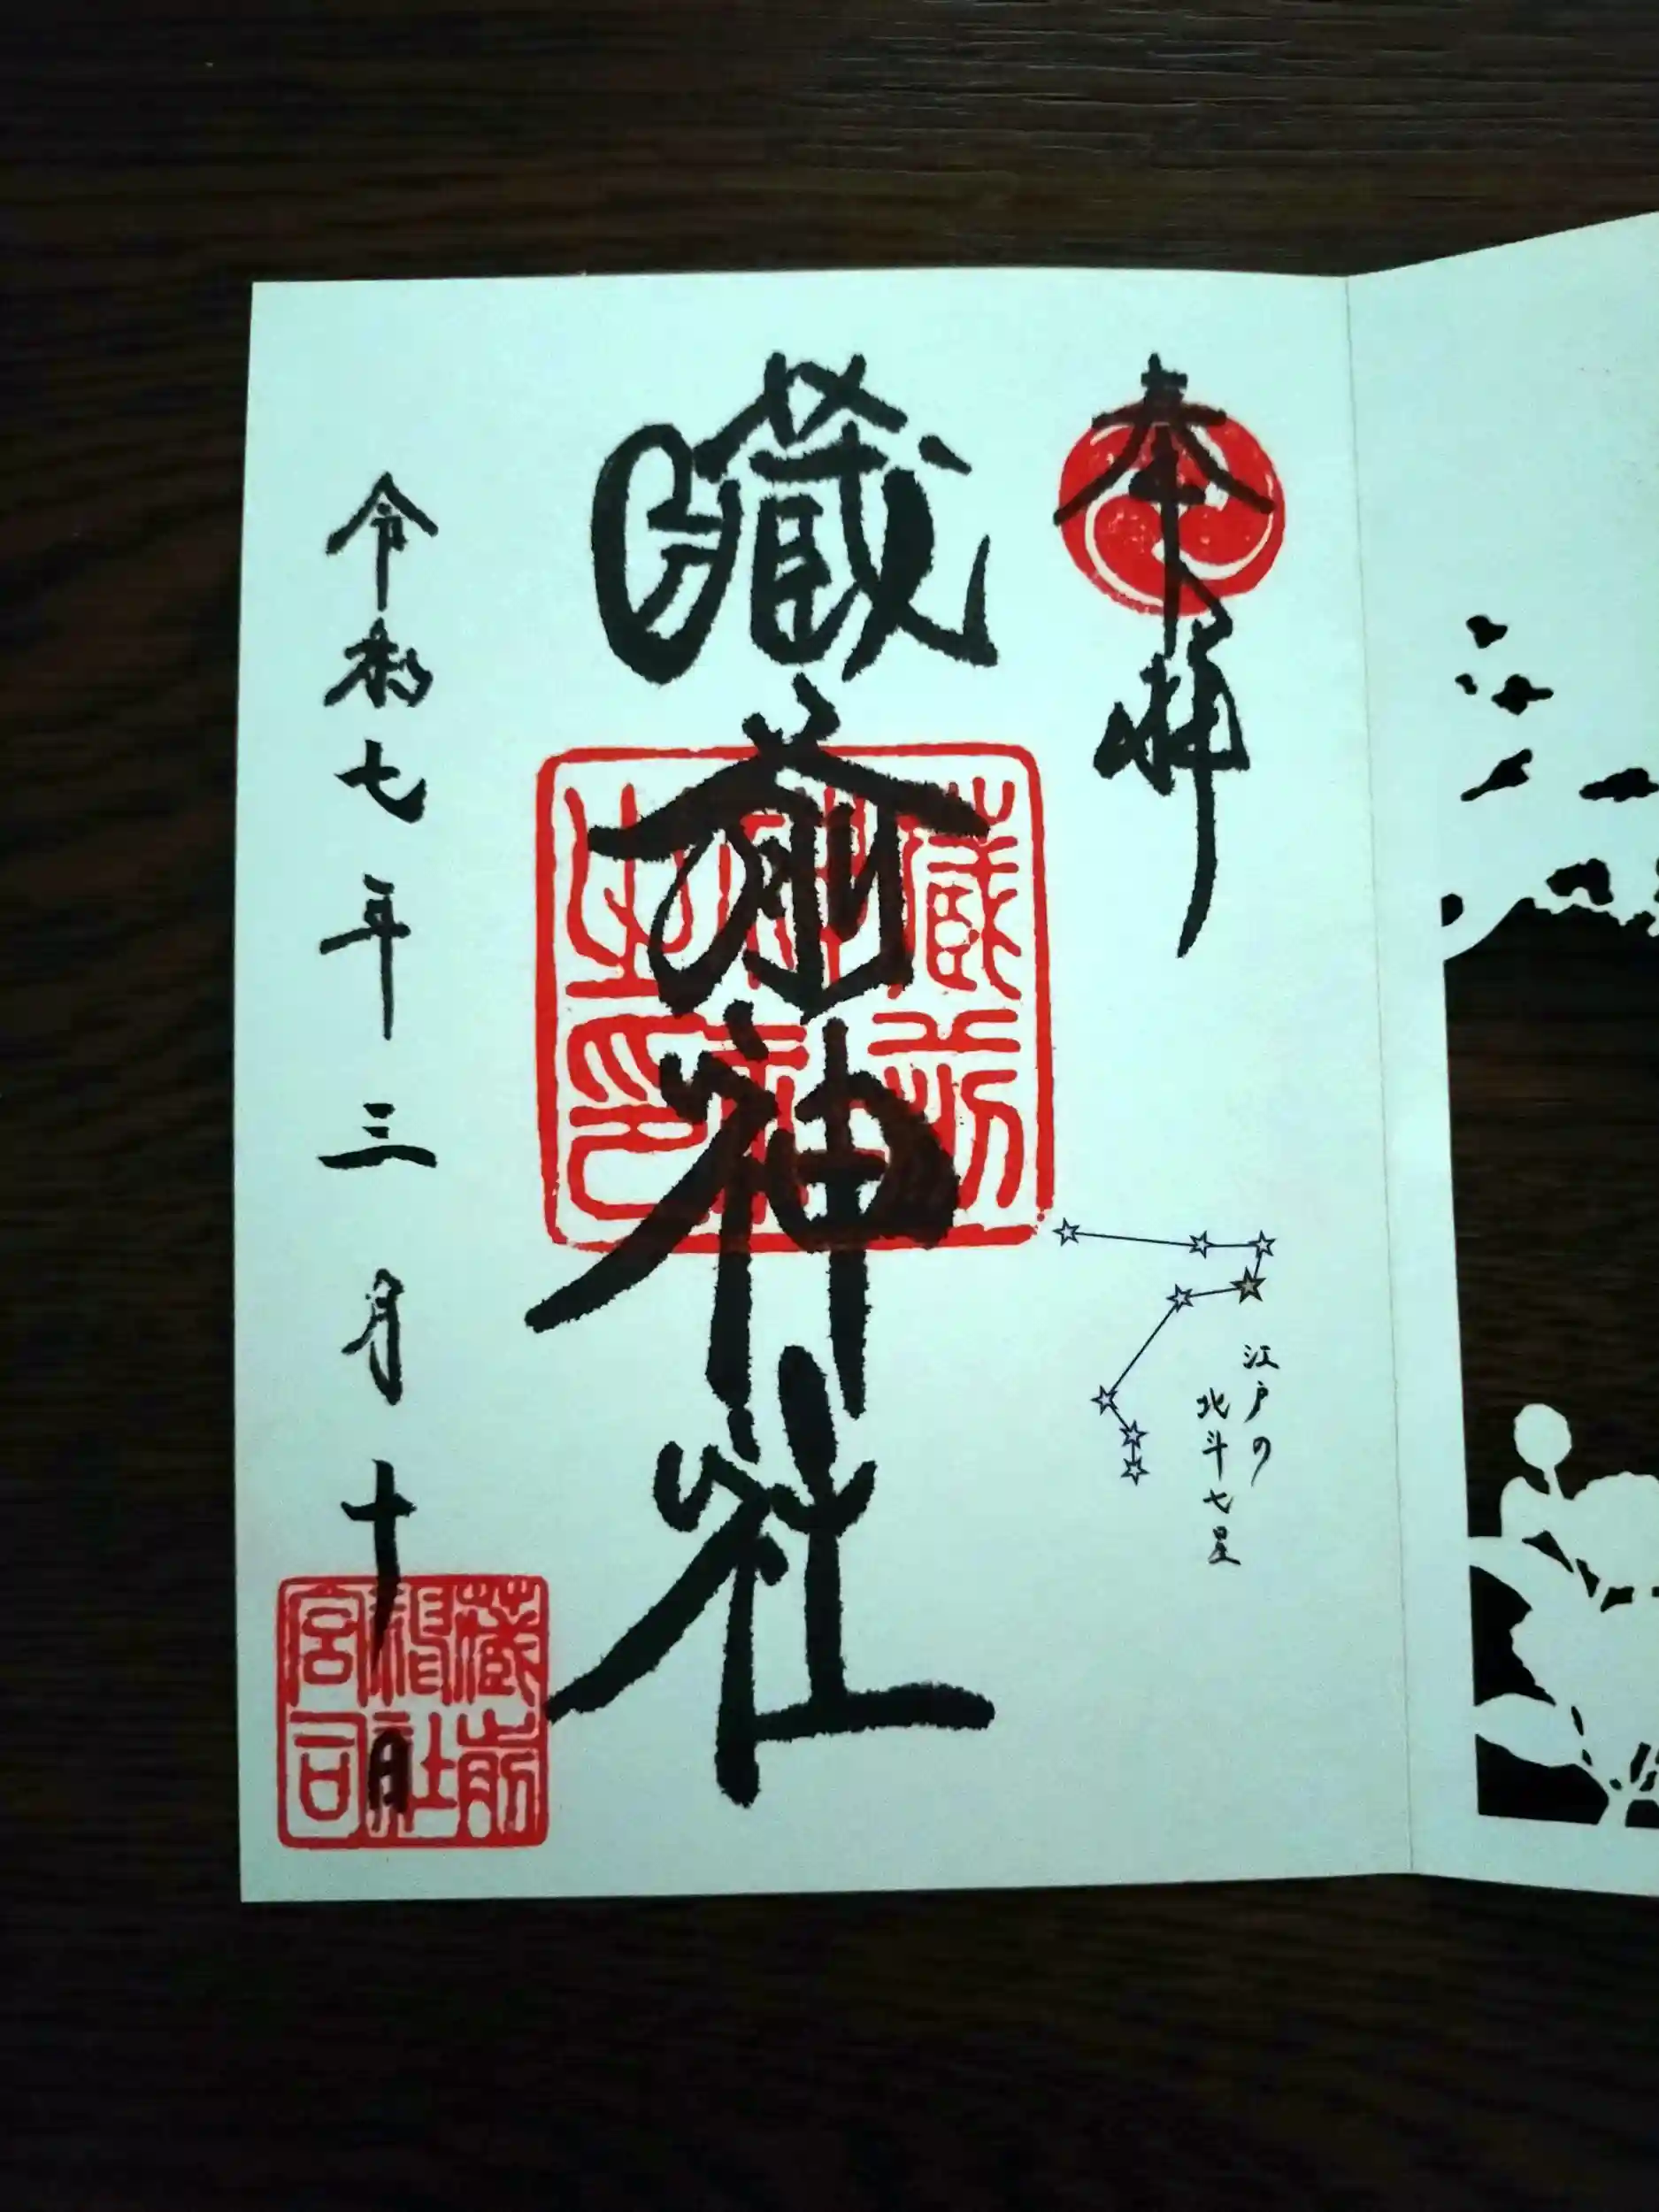 奉拝
江戸の
北斗七星
藏前神社
蔵前
神社
之印
令和七年三月十日
蔵前
神社
宮司